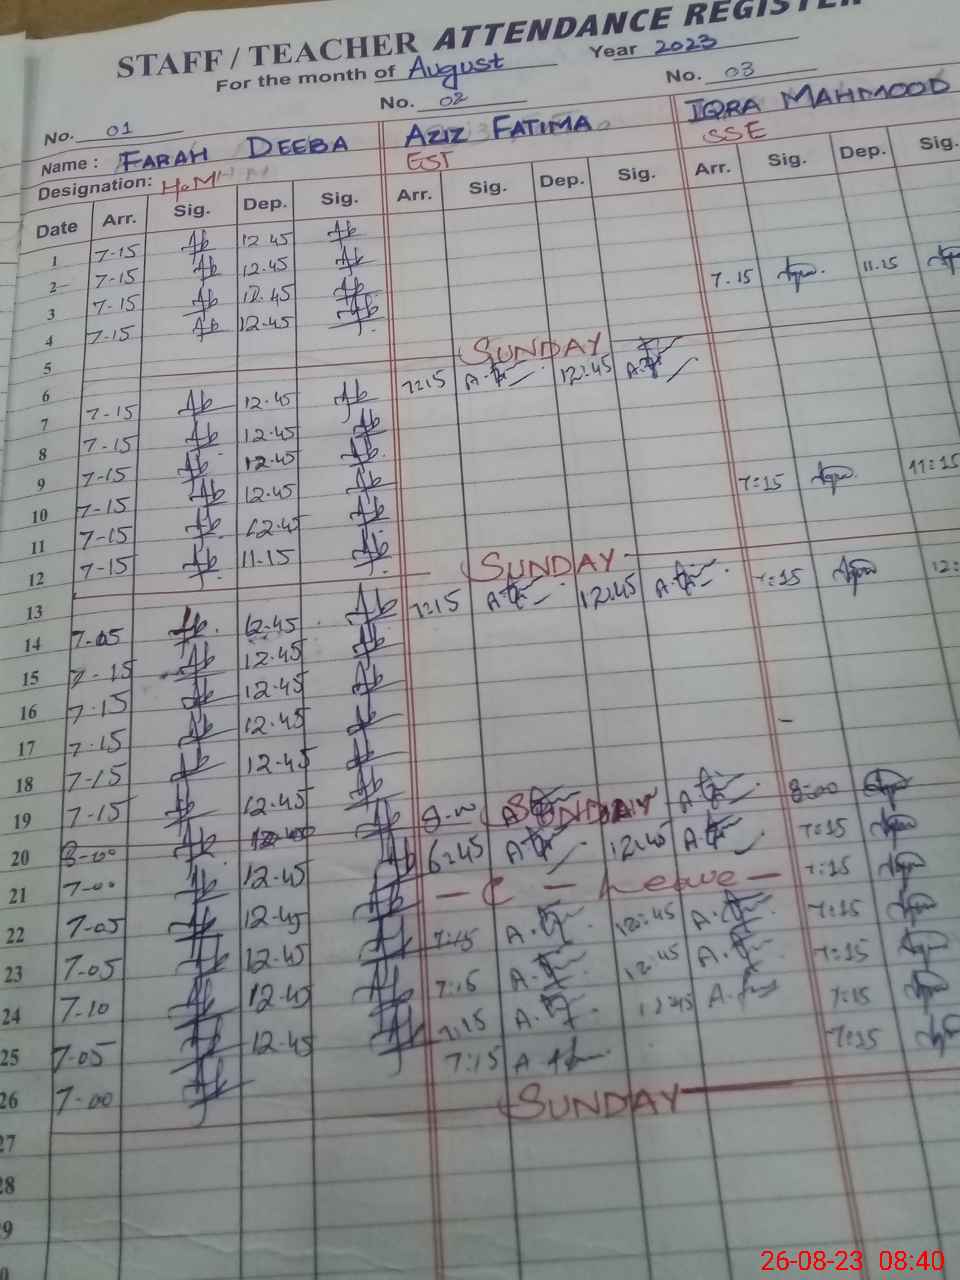 STAFF / TEACHER ATTENDANCE REGISTER
For the month of August Year 2023
No. 01 No. 02 No. 03
Name : FARAH DEEBA AZIZ FATIMA IQRA MAHMOOD
Designation: EST SSE
Date Arr. Sig. Dep. Sig. Arr. Sig. Dep. Sig. Arr. Sig. Dep. Sig.
1 7-15 12.45
2 7-15 12.45 7.15 11.15
3 7-15 12.45
4 7-15 12.45
5 SUNDAY
6 7:15 12:45
7 7-15 12.45
8 7-15 12.45
9 7-15 12.45 7:15 11:15
10 7-15 12.45
11 7-15 12.45
12 7-15 11.15 SUNDAY
13 7:15 12:45 7:15 12:
14 7-05 12.45
15 7-15 12.45
16 7-15 12.45
17 7-15 12.45
18 7-15 12.45
19 7-15 12.45 SUNDAY 8:00
20 8-00 6:45 12:45 7:15
21 7-00 12.45 - C - Leave - 7:15
22 7-05 12.45 7:15 12:45 7:15
23 7-05 12.45 7:15 12:45 7:15
24 7-10 12.45 7:15 12:45 7:15
25 7-05 12.45 7:15 7:15
26 7-00 SUNDAY
27
28
29
26-08-23 08:40